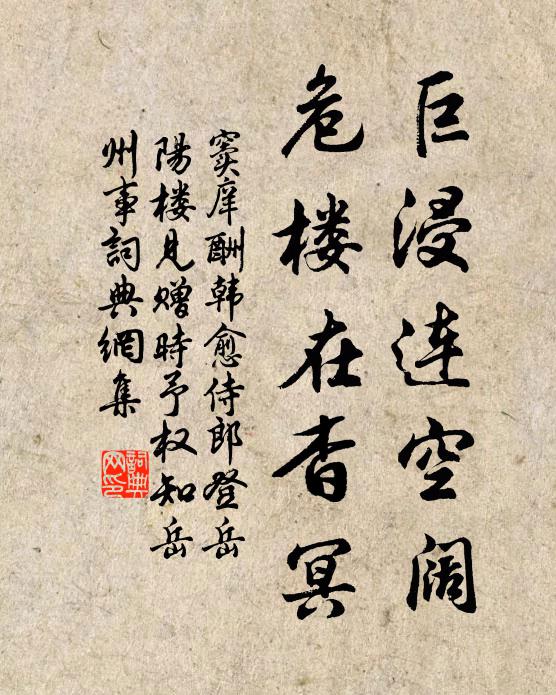 巨浸连空阔
危楼在杳冥
窦庠酬韩愈侍郎登岳
陽楼見赠時予权知岳
州事詞典網集
詞典
网印